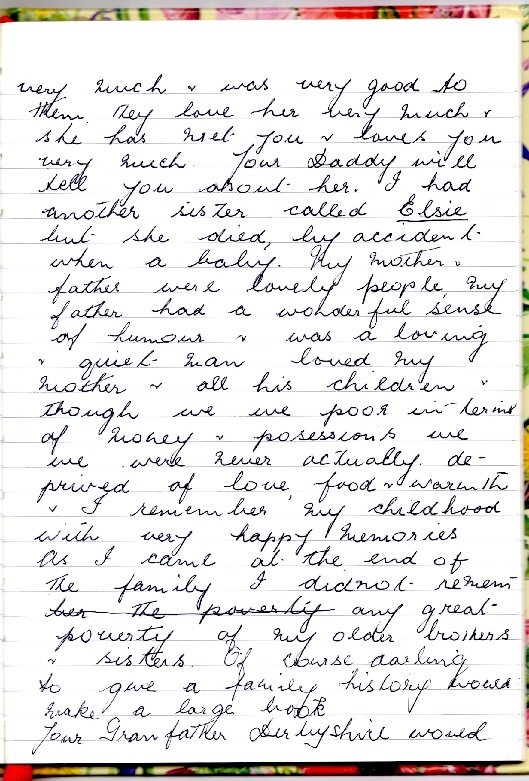 very much & was very good to
them. They love her very much &
she has met you & loves you
very much. Your Daddy will
tell you about her. I had
another sister called Elsie
but she died, by accident
when a baby. My mother &
father were lovely people, my
father had a wonderful sense
of humour & was a loving
& quiet man loved my
mother & all his children &
though we we poor in terms
of money & posessions we
we were never actually de-
prived of love, food & warmth
& I remember my childhood
with very happy memories
As I came at the end of
the family I didnot remem
ber the poverty any great
poverty of my older brothers
& sisters. Of course darling
to give a family history would
make a large book
Your Granfather Derbyshire would